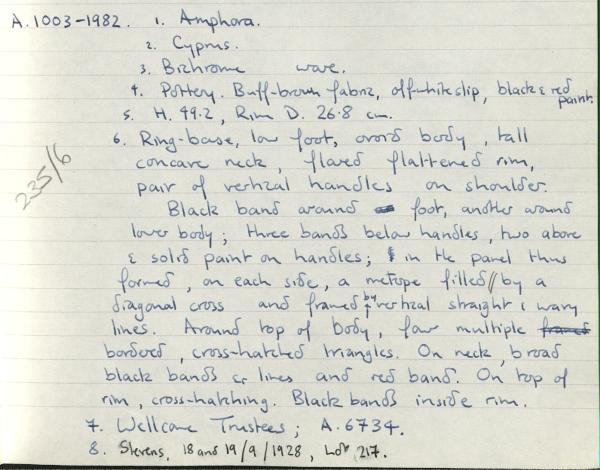 A.1003-1982. 1. Amphora.
2. Cyprus.
3. Bichrome ware.
4. Pottery. Buff-brown fabric, off-white slip, black & red paint.
5. H. 49.2, Rim D. 26.8 cm.
6. Ring-base, low foot, ovoid body, tall
concave neck, flared flattened rim,
pair of vertical handles on shoulder.
235/6
Black band around foot, another around
lower body; three bands below handles, two above
& solid paint on handles; in the panel thus
formed, on each side, a metope filled by a
diagonal cross and framed by vertical straight & wavy
lines. Around top of body, four multiple framed
bordered, cross-hatched triangles. On neck, broad
black bands & lines and red band. On top of
rim, cross-hatching. Black bands inside rim.
7. Wellcome Trustees; A.6734.
8. Stevens, 18 and 19/9/1928, Lot 217.